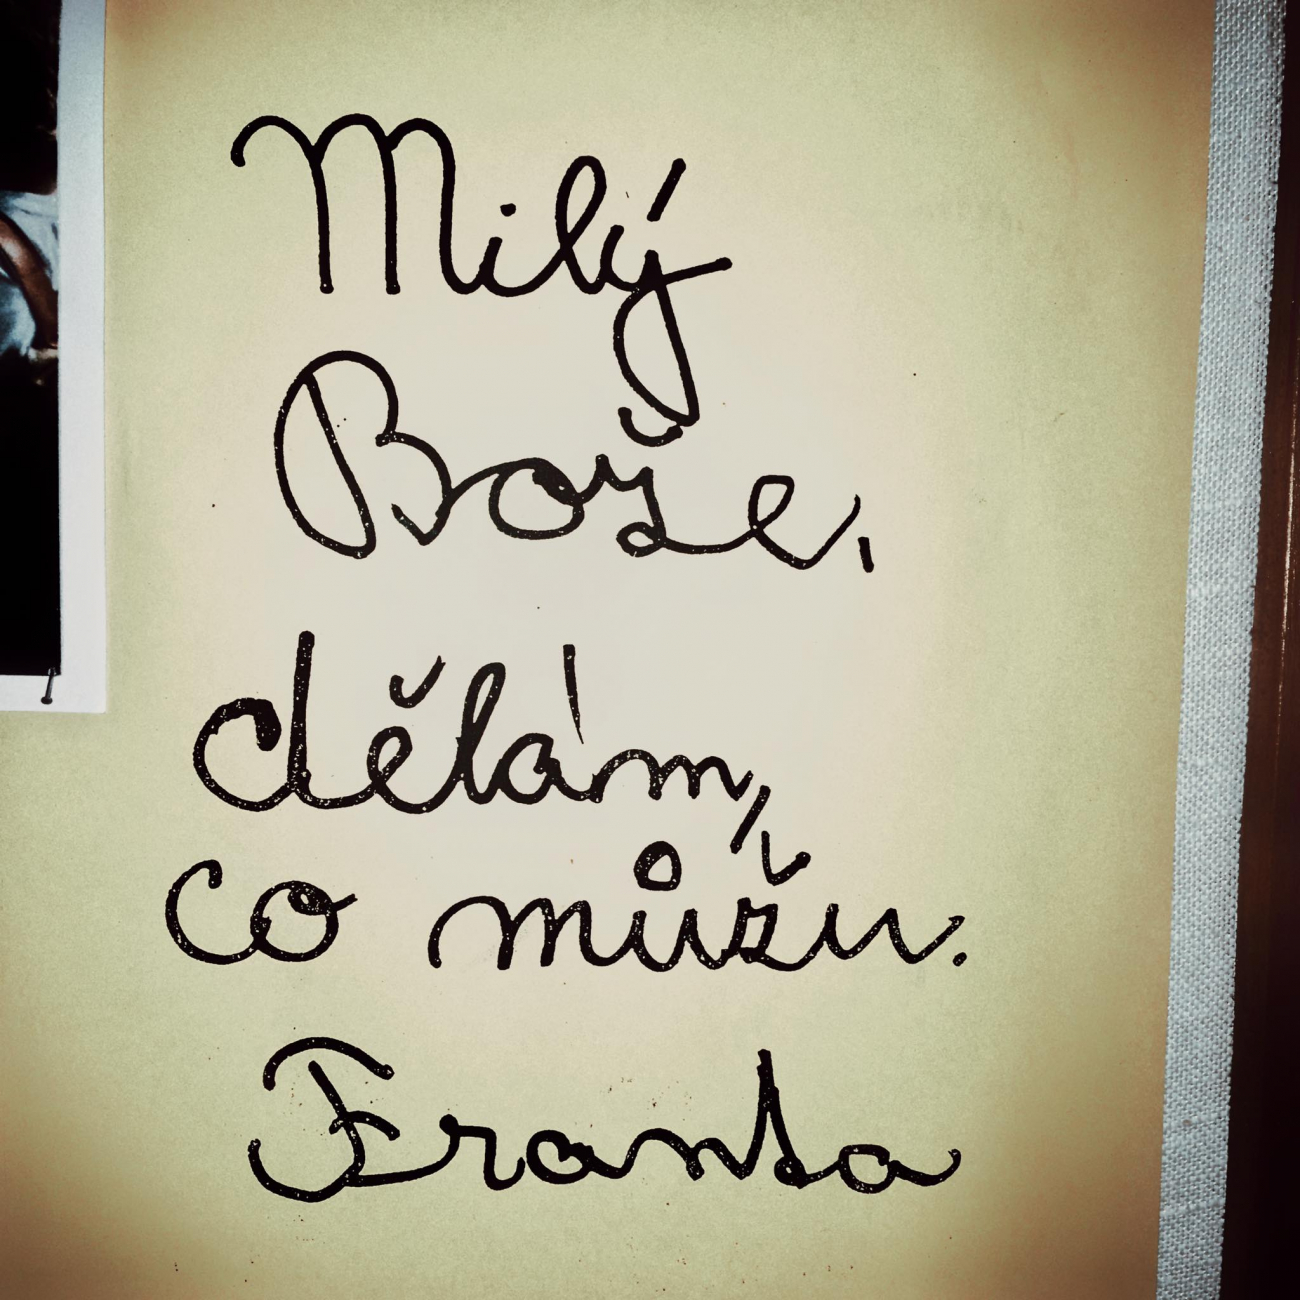 Milý
Bože,
dělám,
co můžu.
Franta